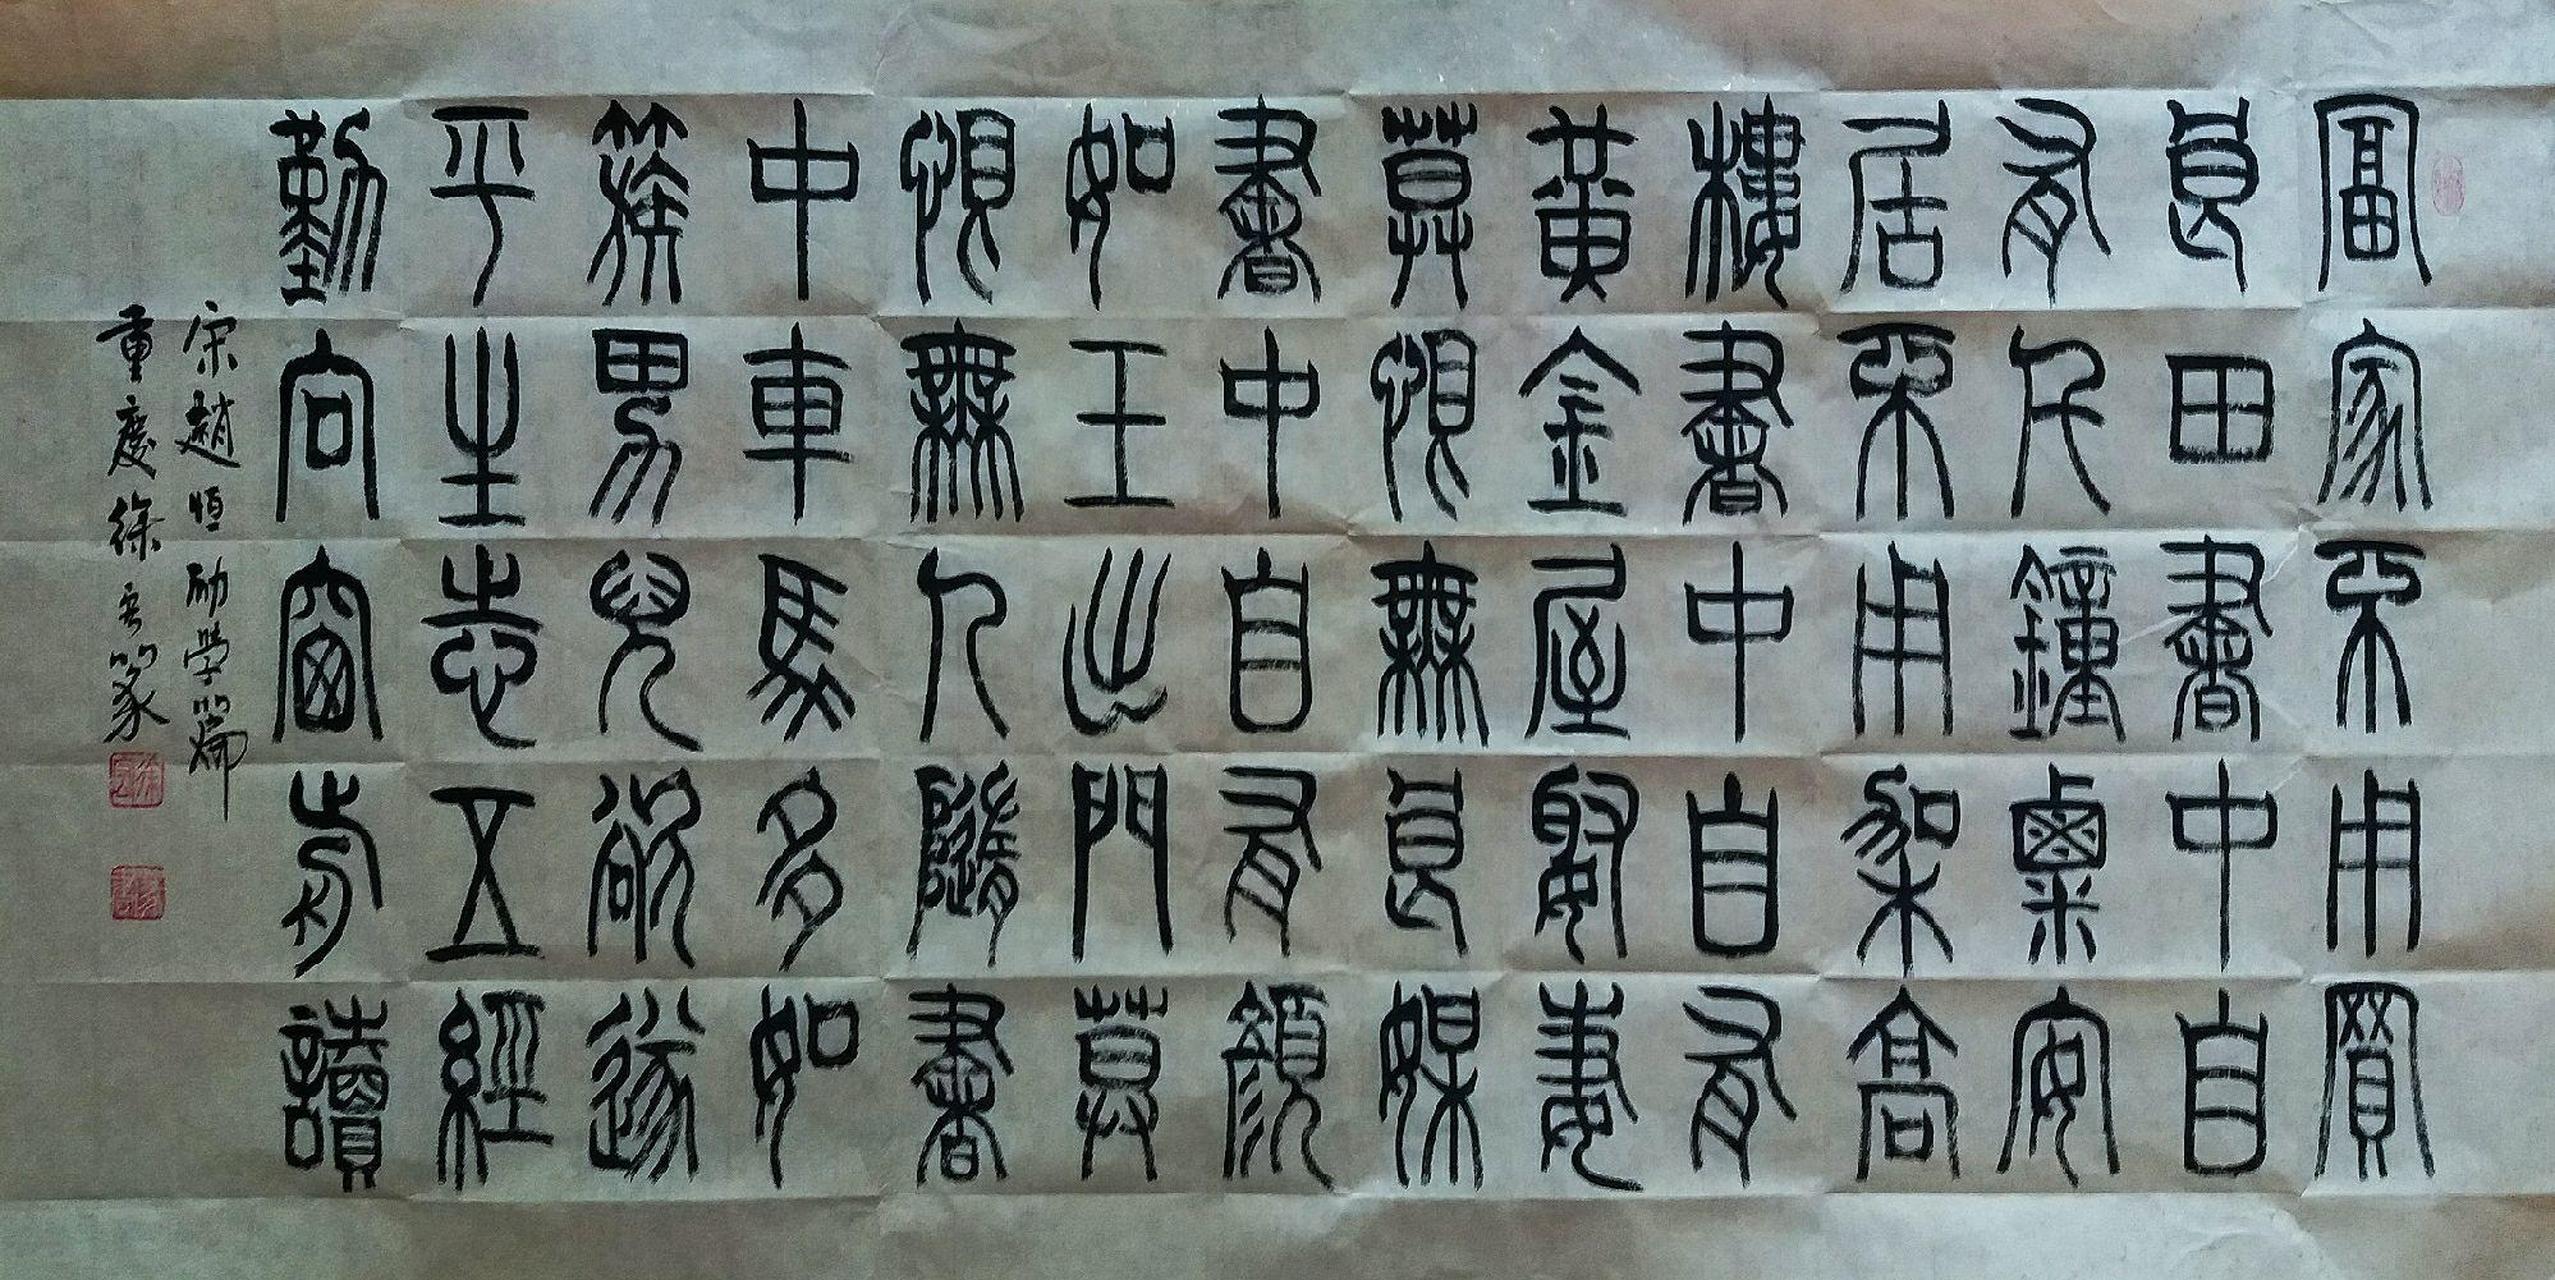 富家不用買
良田書中自
有千鍾粟安
居不用架高
樓書中自有
黃金屋娶妻
莫恨無良媒
書中自有顏
如玉出門莫
恨無人隨書
中車馬多如
簇男兒欲遂
平生志五經
勤向窗前讀
宋趙恒励學篇
重慶徐篆